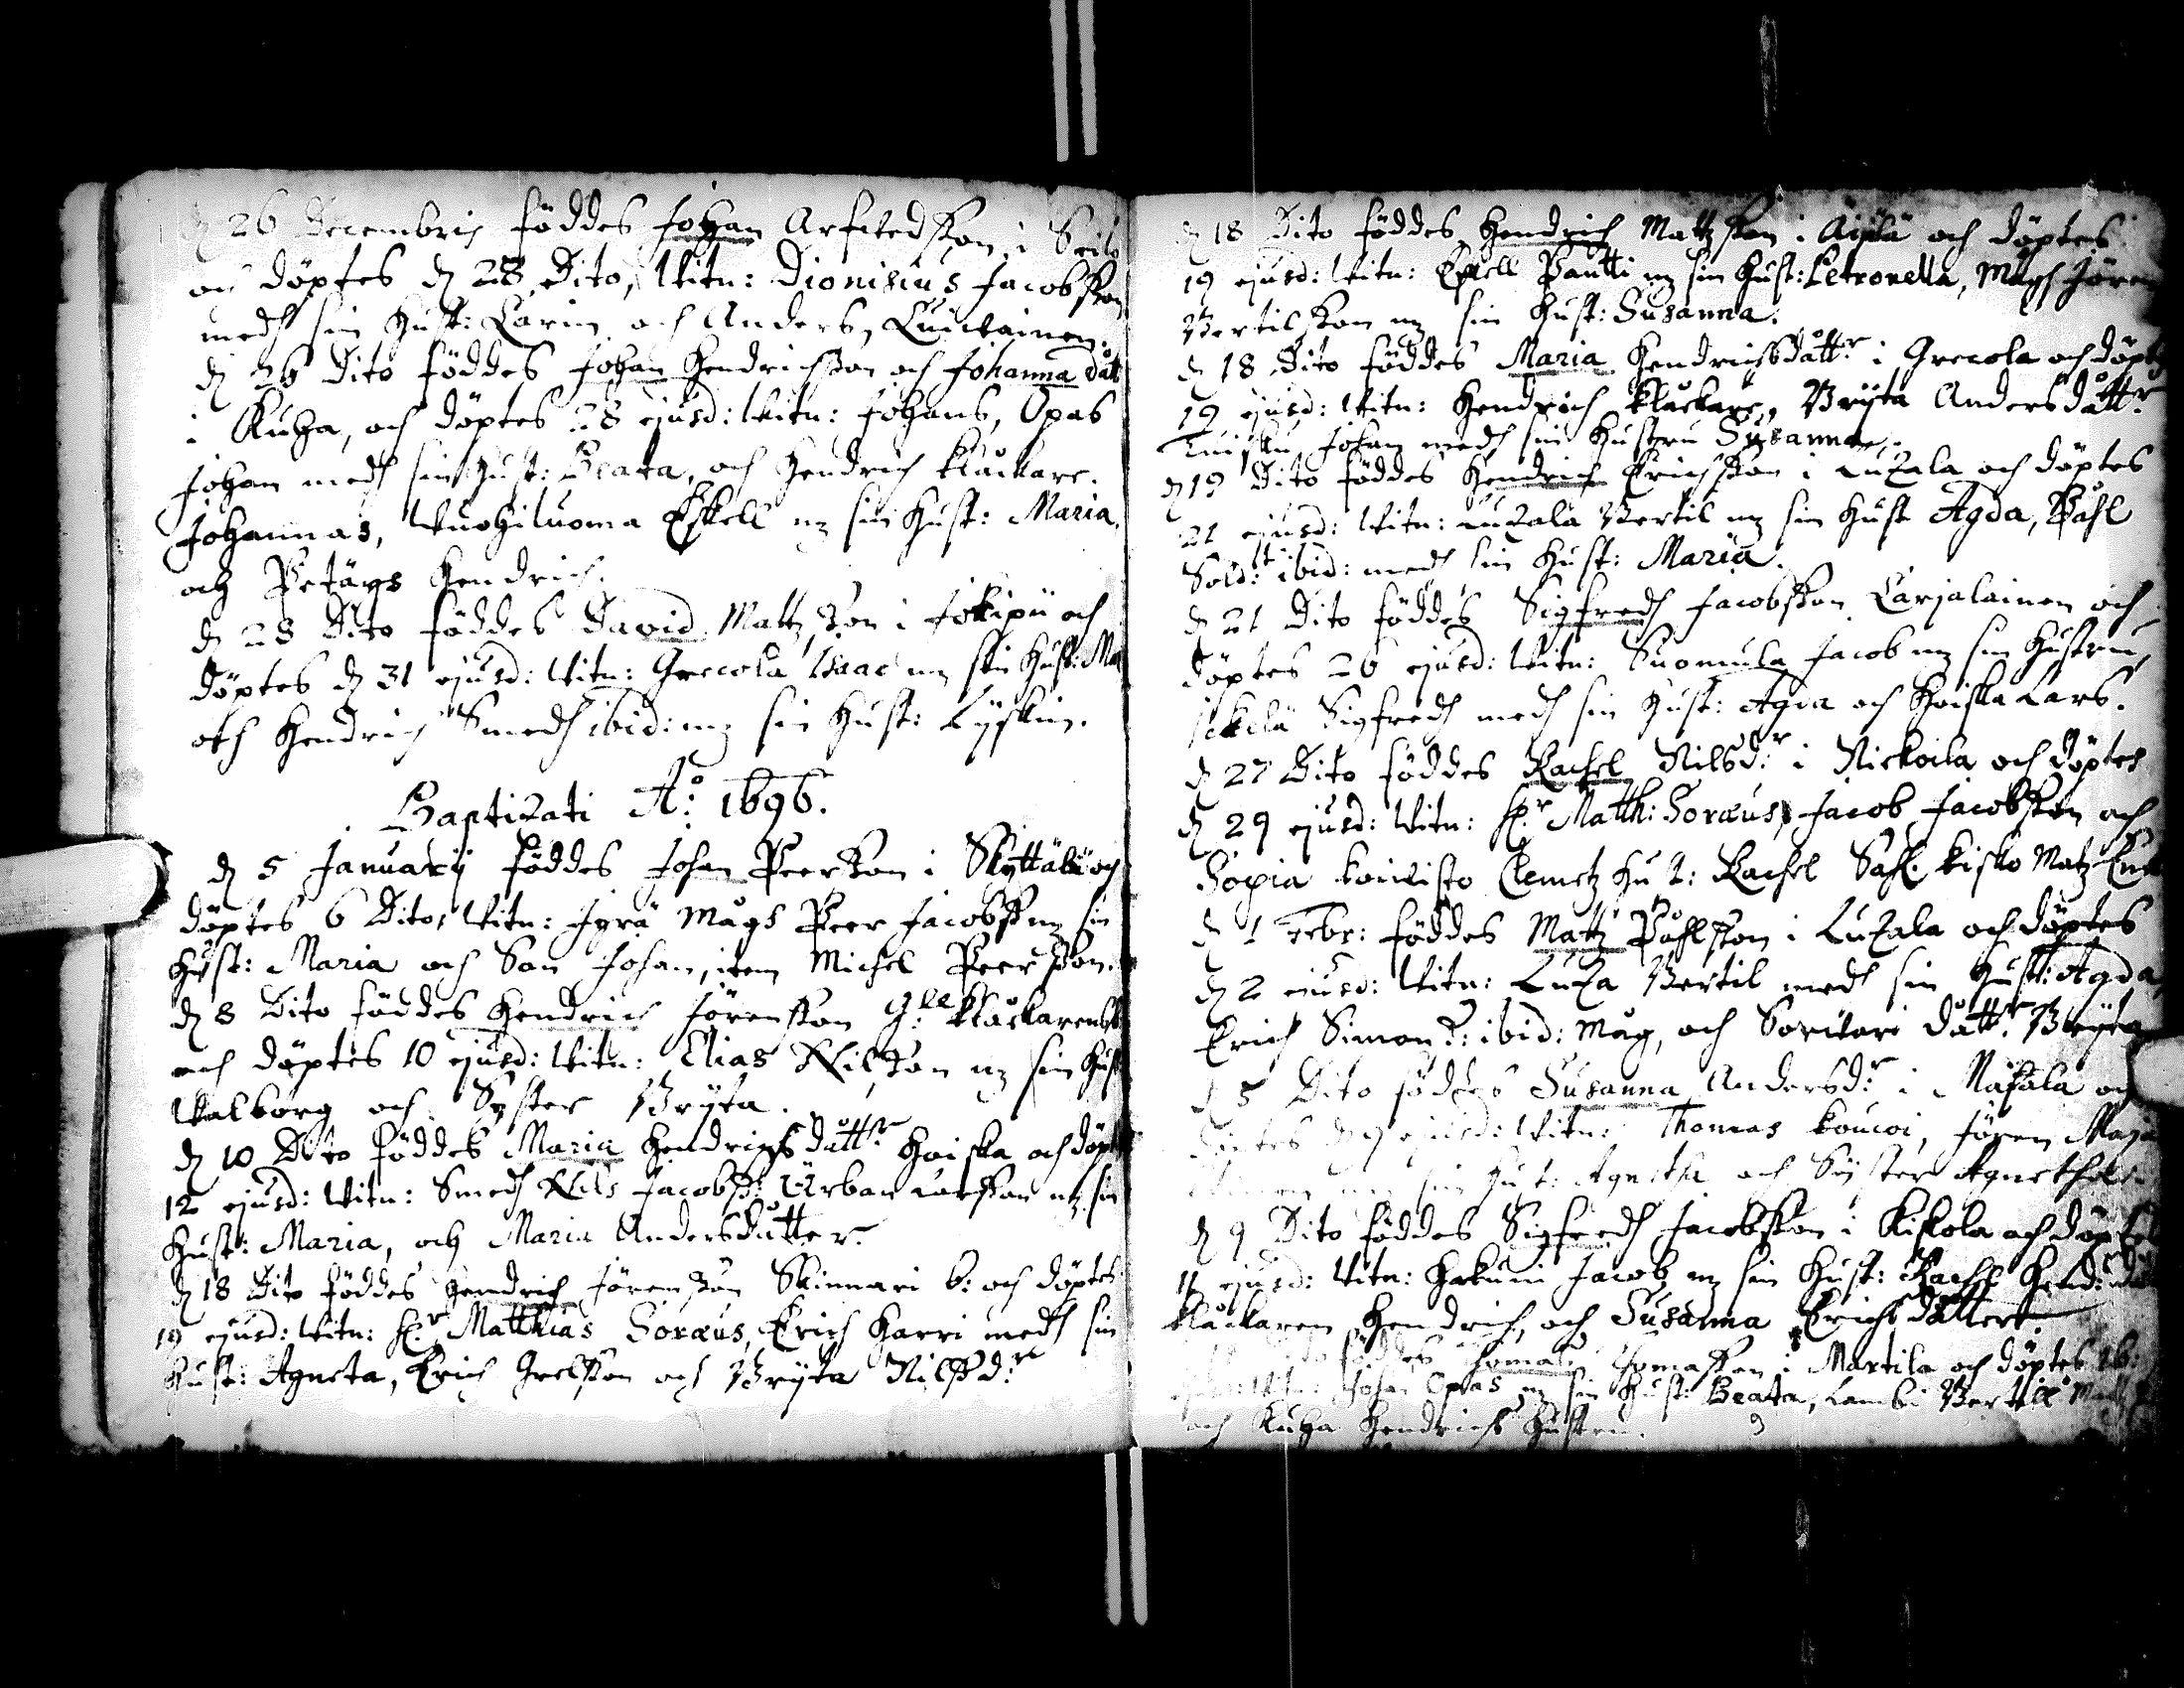 d 26 Decembris föddes Johan Arfvedsson i
och döptes d 28 Dito, Vitn: Dionisius Jacobsson
medh sin Hust: Carin och Anders,
d 26 Dito föddes Johan Hendrichsson och Johanna dått
i Kuha, och döptes 28 ejusd: Vitn: Johans, Opas
Johan medh sin Hust: Beata, och Hendrich kläckare.
Johannas, Vuohiluoma Eskell m sin Hust: Maria,
och Hendrich.
d 28 Dito föddes David Mattzson i Jokipii och
döptes d 31 ejusd: Vitn: Grecola Isaac m sin Hust: Ma
och Hendrich Smedh ibid: m sin Hust: Lyskin.
Baptizati Ao: 1696.
d 5 Januarij föddes Johan Peersson i Skyttälä och
döptes 6 Dito, Vitn: Jyrä mågh Peer Jacobss m sin
Hust: Maria och Son Johan, item Michel Peersson.
d 8 Dito föddes Hendrich Jörensson klåckarens
och döptes 10 ejusd: Vitn: Elias Nilsson m sin Hust
Walborg och Syster Bryta.
d 10 Dito föddes Maria Hendrichsdåttr Hoiska och döptes
12 ejusd: Vitn: Smedh Nils Jacobss: Urban Larsson m sin
Hust: Maria, och Maria Andersdutter.
d 18 Dito föddes Hendrich Jörensson Skinnari b: och döptes
19 ejusd: Vitn: Hr Matthias Soraeus, Erich Harri medh sin
Hust: Agneta, Erich Grelsson och Bryta Nilssdr
d 18 Dito föddes Hendrich Mattzson i Äijälä och döptes
19 ejusd: Vitn: Eskell Pautti m sin Hust: Petronella, Mågh Jören
Bertilsson m sin Hust: Susanna.
d 18 Dito föddes Maria Hendrichsdåttr i Grecola och döptes
19 ejusd: Vitn: Hendrich kläckare, Bryta Andersdåttr
Luisku Johan medh sin Hustru Susanna.
d 19 Dito föddes Hendrich Erichsson i Luhala och döptes
21 ejusd: Vitn: Luhala Bertil m sin Hust Agda, Påhl
Sold: ibid: medh sin Hust: Maria.
d 21 Dito föddes Sigfredh Jacobsson Carjalainen och
döptes 26 ejusd: Vitn: Suomula Jacob m sin Hustru,
Sigfredh medh sin Hust: Agda och Hoiska Lars.
d 27 Dito föddes Rachel Nilsdr i Nickoila och döptes
d 29 ejusd: Vitn: Hr Matth: Soraeus, Jacob Jacobsson och
Sopia koivisto Clemetz Hust: Rachel Sahl. kisko Matz
d 1 Febr: föddes Matz Påhlsson i Luhala och döptes
d 2 ejusd: Vitn: Luha Bertil medh sin Hust: Agda,
Erich Simons: ibid: måg, och Sorvari dåttr Bryta
d 5 Dito föddes Susanna Andersdr i och
döptes d ejusd: Vitn: Thomas koucoi, Jören
sin Hust: Agnetha och Syster Agnetha.
d 9 Dito föddes Sigfredh Jacobsson i Kiskola och döptes
11 ejusd: Vitn: Hakuni Jacob m sin Hust: Rachel
kläckaren Hendrich, och Susanna Erichsdåtter.
föddes Tomas Tomasson i Martila och döptes 16:
Vitn: Johan Opas m sin Hust: Beata, Lambi Bertill
och Kuha Hendrichs Hustru.